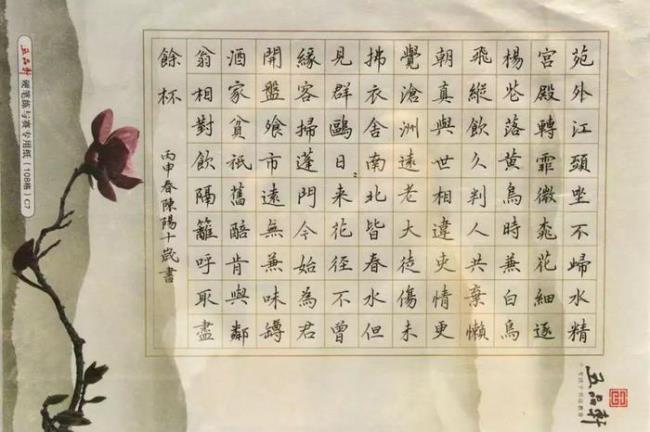 苑外江頭坐不歸水精
宮殿轉霏微桃花細逐
楊花落黃鳥時兼白鳥
飛縱飲久判人共棄懶
朝真與世相違吏情更
覺滄洲遠老大徒傷未
拂衣舍南北皆春水但
見群鷗日来花径不曾
緣客掃蓬門今始為君
開盤飧市遠無兼味罇
酒家貧祇舊醅肯與鄰
翁相對飲隔籬呼取盡
餘杯
丙申春陳陽十歲書
五品轩 硬笔练与赛专用纸（108格）C7
五品轩